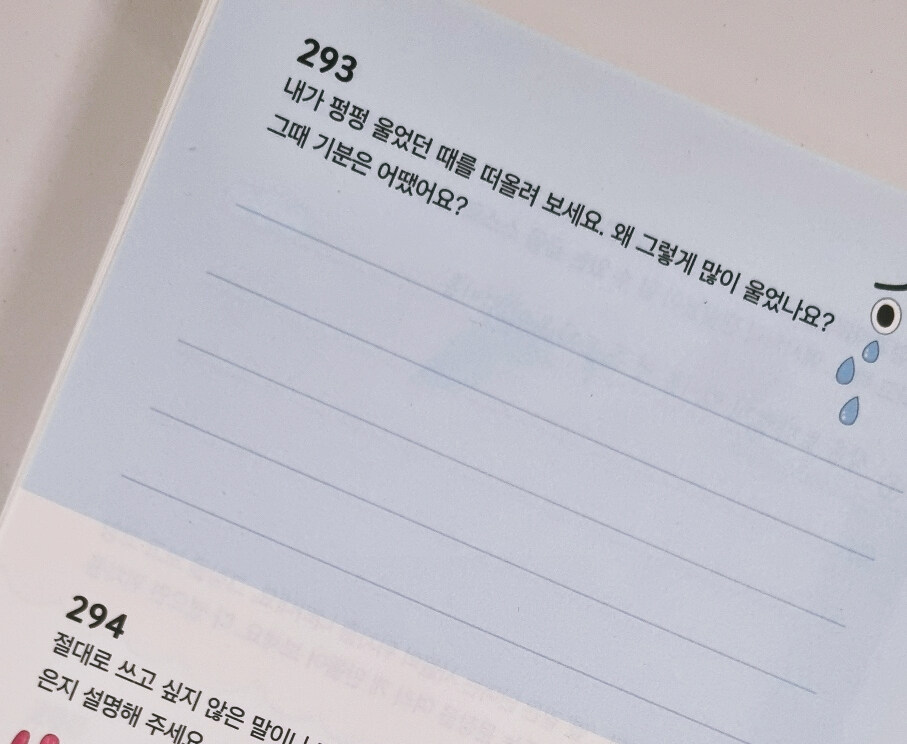 293
내가 펑펑 울었던 때를 떠올려 보세요. 왜 그렇게 많이 울었나요?
그때 기분은 어땠어요?
294
절대로 쓰고 싶지 않은 말이나
은지 설명해 주세요.